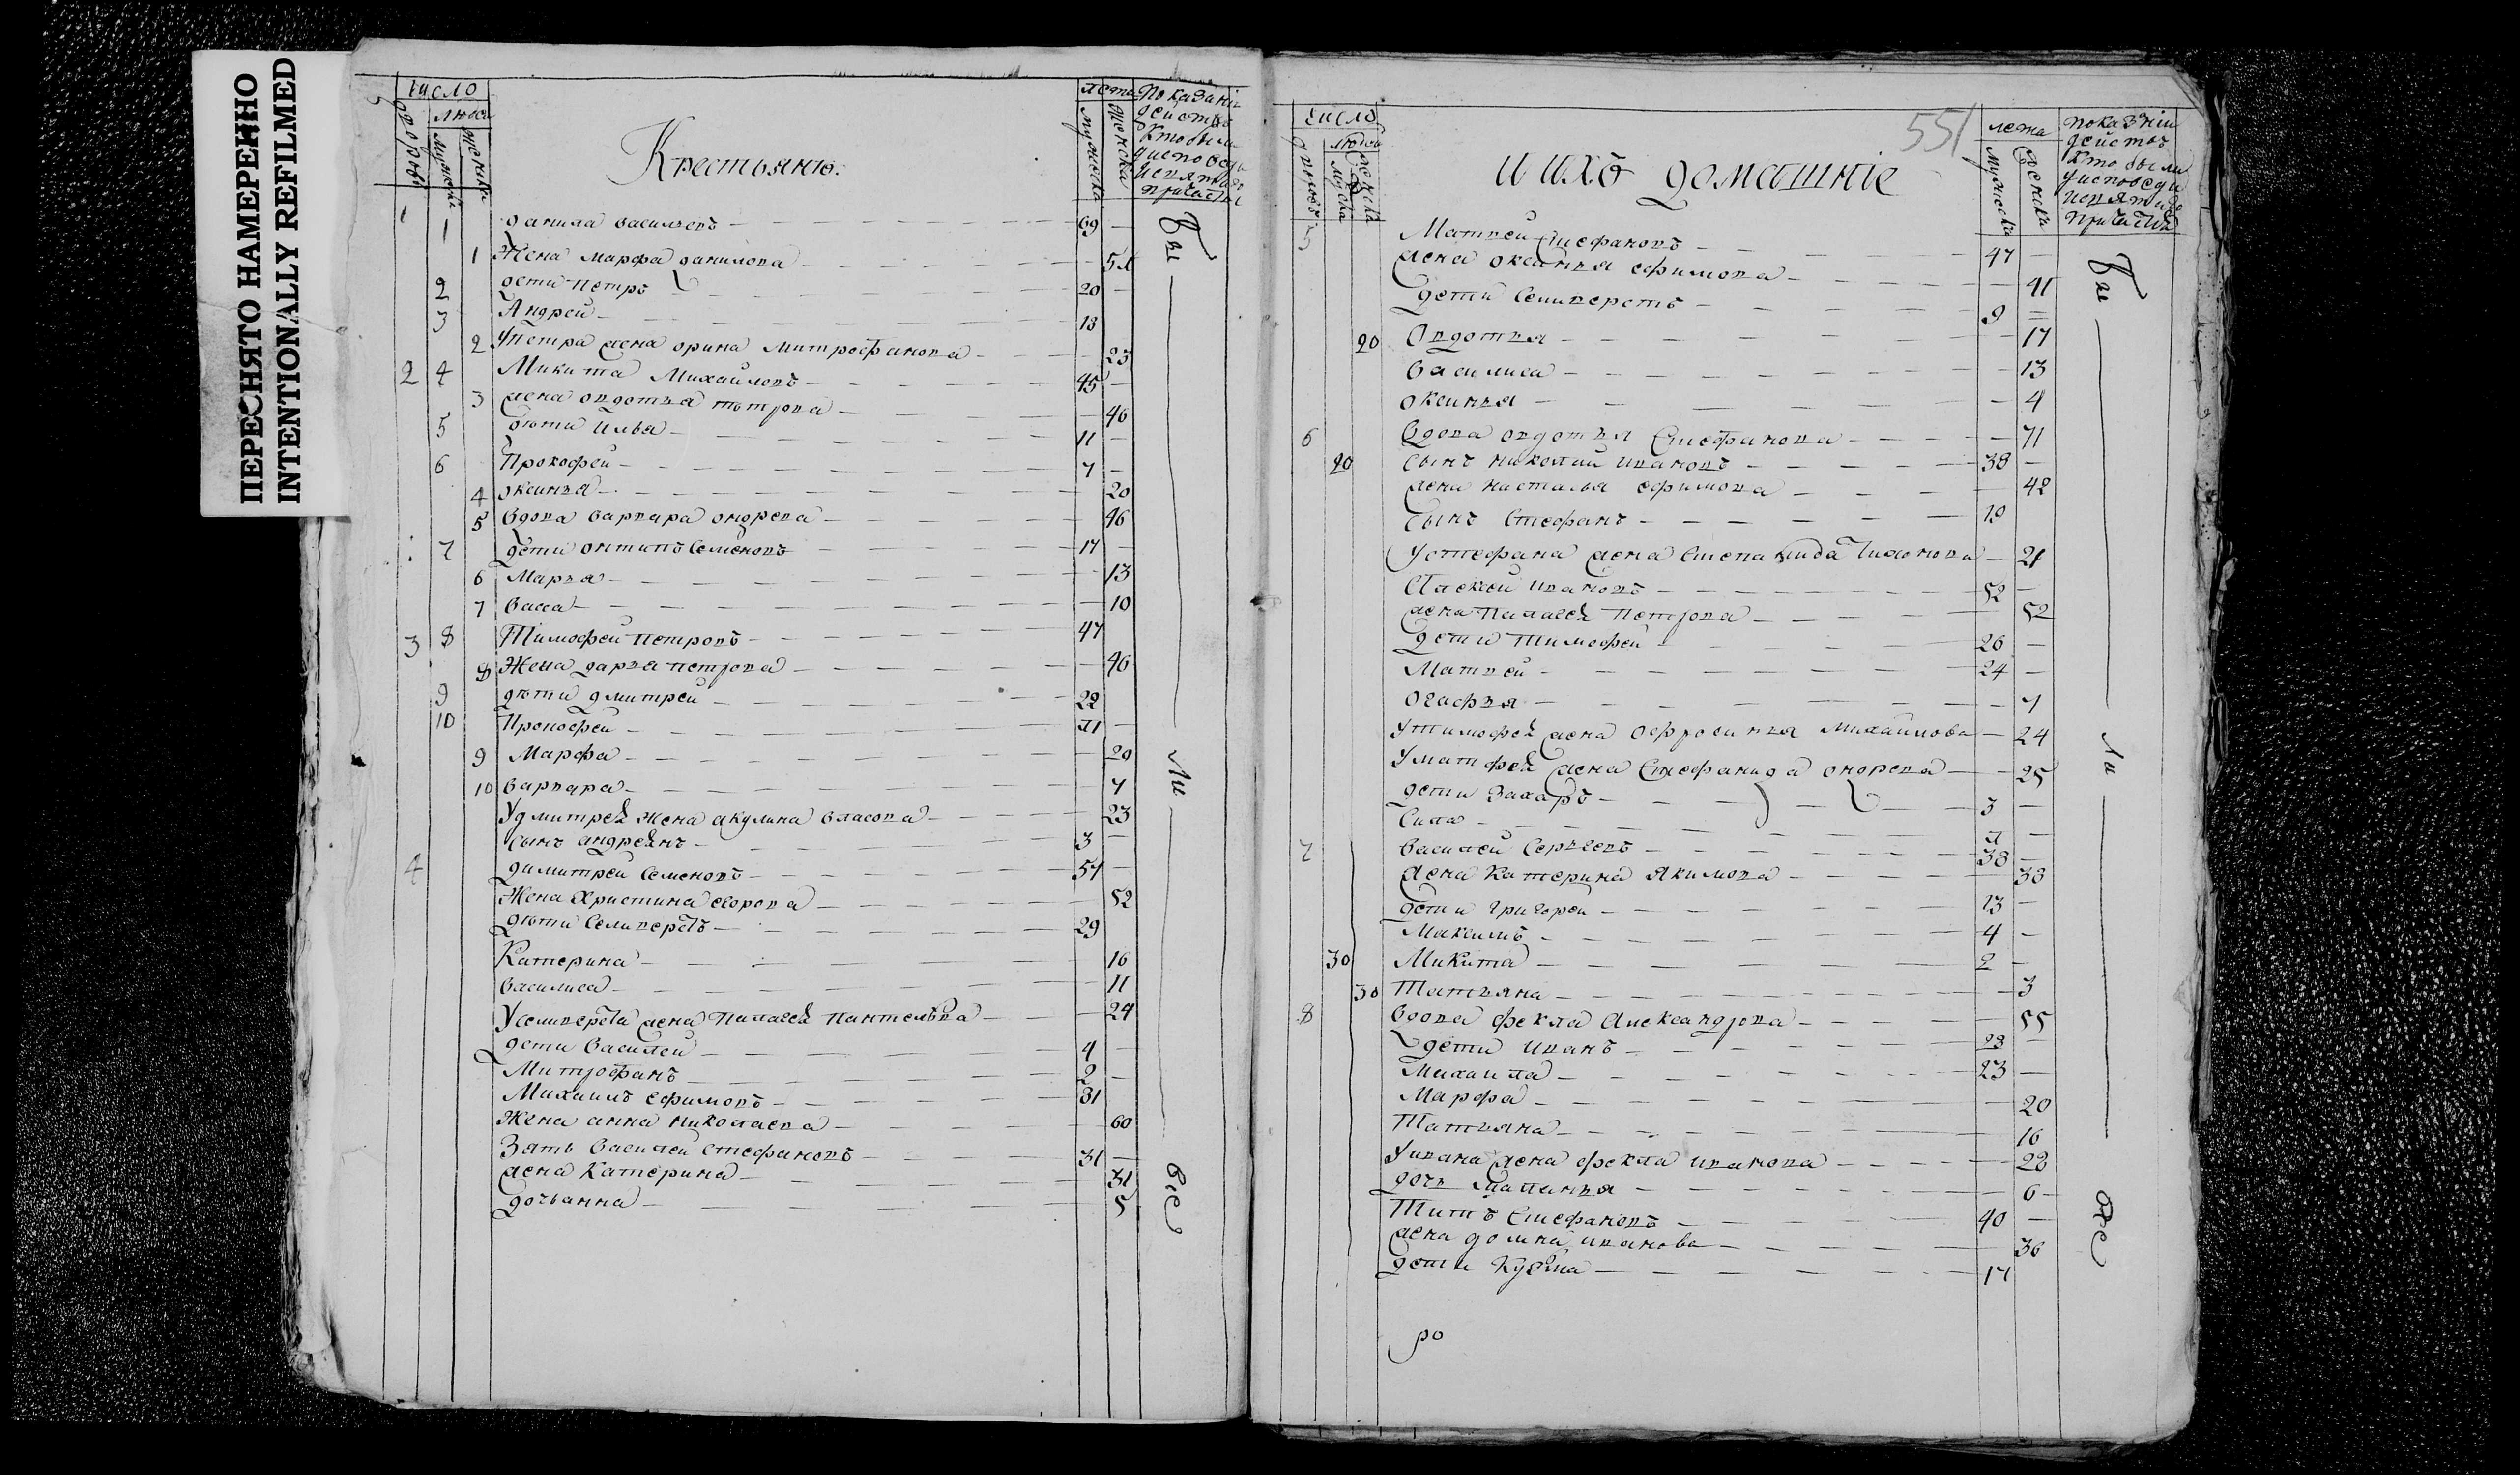 ПЕРЕСНЯТО НАМЕРЕННО
INTENTIONALLY REFILMED
число
людей
мужеска
женска
Крестьянѣ
лета
мужеска
женска
Показанiе
действъ
кто были
у исповеди
и святаго
причастiя
1 1 данила васильевъ 69
1 Жена марфа данилова
2 дети петръ 20
3 Андрей 13
2 у петра жена орина митрофанова 23
2 4 Микита Михайловъ 45
3 жена овдотья петрова 46
5 дѣти илья 11
6 Прокофей 7
4 оксинья 20
5 вдова варвара ондрева 46
7 дети онтипъ Семеновъ 17
6 Марья 13
7 васса 10
3 8 Тимофей петровъ 47
8 Жена дарья петрова 46
9 дѣти дмитрей 22
10 Прокофей
9 Марфа 20
10 варвара 7
у дмитрея жена акулина власова 23
сынъ андреянъ 3
4 димитрей Семеновъ 57
Жена христина егорова 52
дѣти Селиверстъ 29
Катерина 16
василиса 11
у селиверста жена Палагея Пантелѣева 24
дети василей 4
Митрофанъ 2
Михаилъ ефимовъ 31
Жена анна николаева 60
Зять василей стефановъ 31
жена катерина 31
дочь анна 5
бы
ли
все
551
число
людей
мужеска
женска
и ихъ домашнiе
лета
мужеска
женска
показанiи
действъ
кто были
у исповеди
и святаго
причастия
5 Матвей Стефановъ 47
жена оксинья ефимова 41
дети Селиверстъ 9
20 Овдотья 17
василиса 13
оксинья 4
6 вдова овдотья Стефанова 71
20 сынъ николай ивановъ 38
жена наталья ефимова 42
сынъ Стефанъ 19
у стефана жена Степанида Тихонова 21
Алексей ивановъ 52
жена Палагея Петрова 52
дети Тимофей 26
Матвей 24
огафья 7
у тимофея жена Офросинья Михайлова 24
у матфея жена Стефанида ондрева 25
дети Захаръ 3
Сила
7 василей Сергеевъ 38
жена катерина Якимова 33
дети григорей 13
Максимъ 4
30 Микита 2
30 Татьяна 3
8 вдова фекла Александрова 55
дети иванъ 23
Михаила 23
Марфа 20
Татьяна 16
у ивана жена фекла иванова 22
дочь Маланья 6
Титъ Стефановъ 40
жена домна иванова 36
дети Кузма 17
бы
ли
все
ро